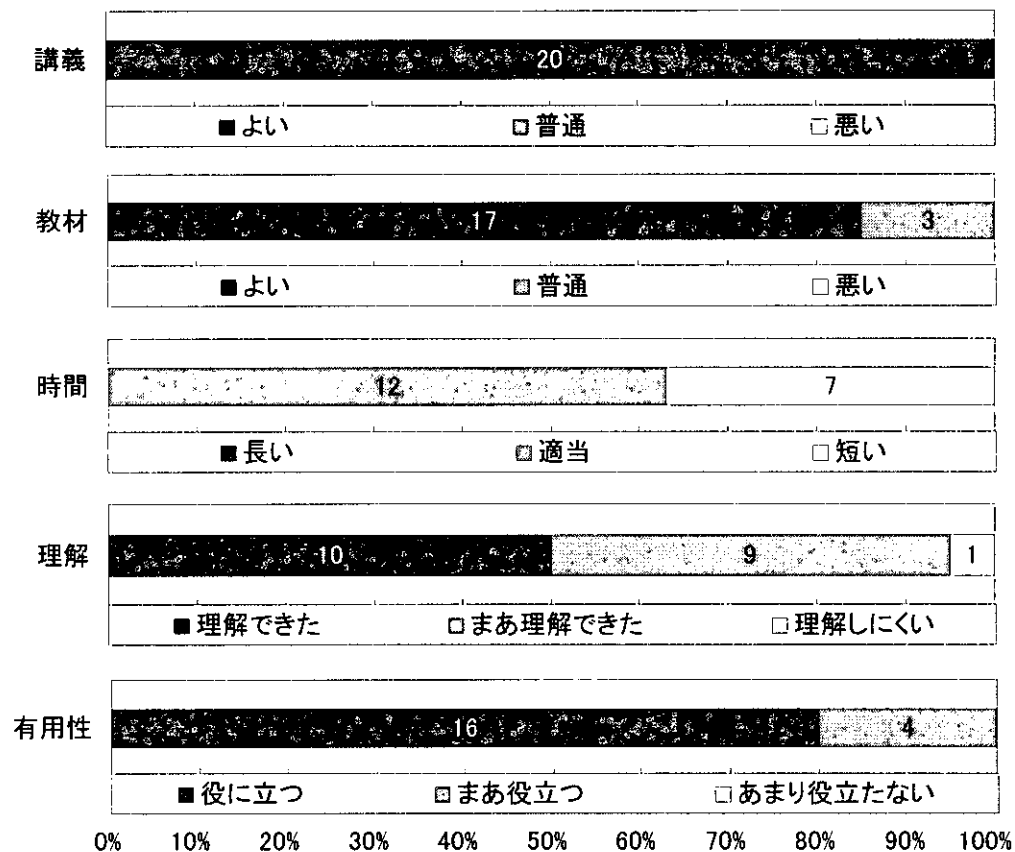 講義
20
■よい □普通 □悪い
教材
17 3
■よい □普通 □悪い
時間
12 7
■長い □適当 □短い
理解
10 9 1
■理解できた □まあ理解できた □理解しにくい
有用性
16 4
■役に立つ □まあ役立つ □あまり役立たない
0% 10% 20% 30% 40% 50% 60% 70% 80% 90% 100%